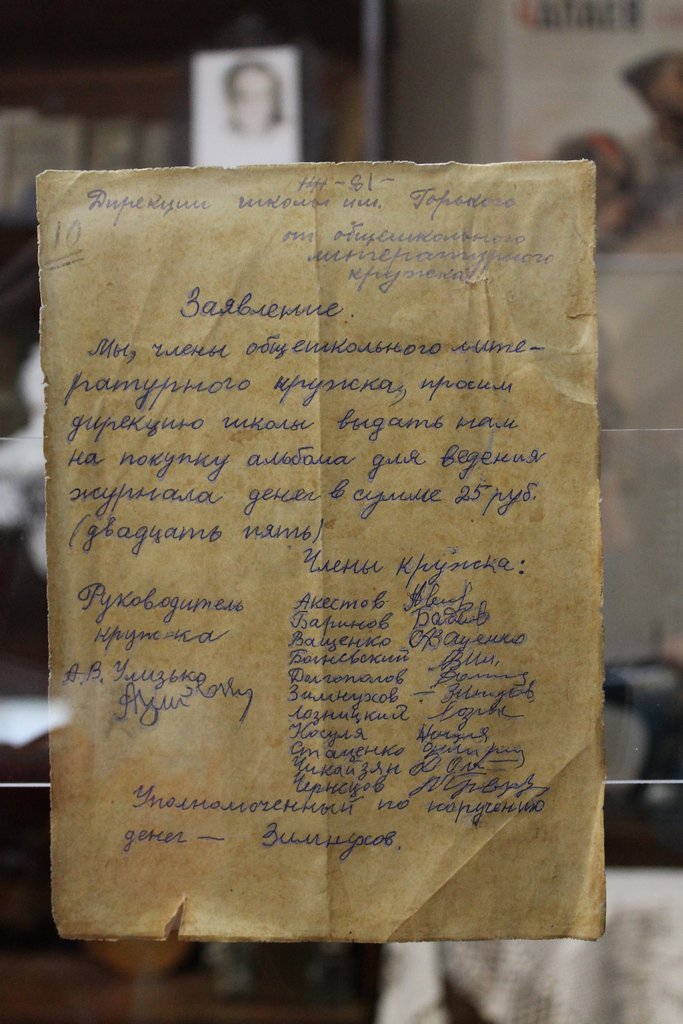 ЧАПАЕВ
НН-81-
Дирекции школы им. Горького
10
от общешкольного
литературного
кружка
Заявление.
Мы, члены общешкольного лите-
ратурного кружка, просим
дирекцию школы выдать нам
на покупку альбома для ведения
журнала денег в сумме 25 руб.
(двадцать пять)
Члены кружка:
Руководитель
круж-ка
А.В. Улизько
Акестов
Баринов
Ващенко ОВащенко
Долгополов
Зимнухов
Лозницкий
Косуля
Стаценко
Чикайзян
Чернецов
Уполномоченный по поручению
денег — Зимнухов.